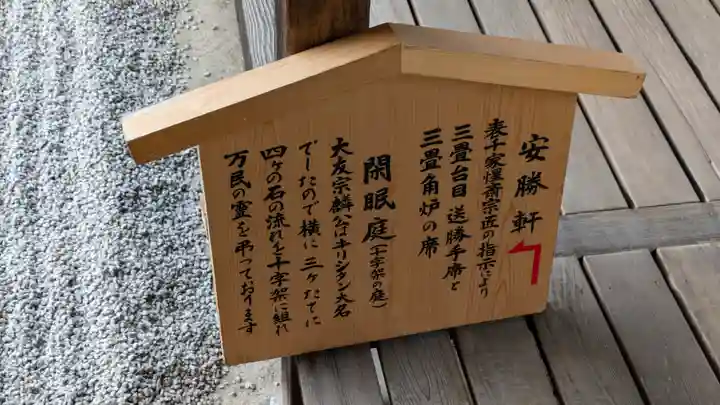 安勝軒
表千家惺斎宗匠の指示により
三畳台目 逆勝手席と
三畳角炉の席
閑眠庭(十字架の庭)
大友宗麟公はキリシタン大名
でしたので横に三ヶたてに
四ヶの石の流れを十字架に組れ
万民の霊を弔っております